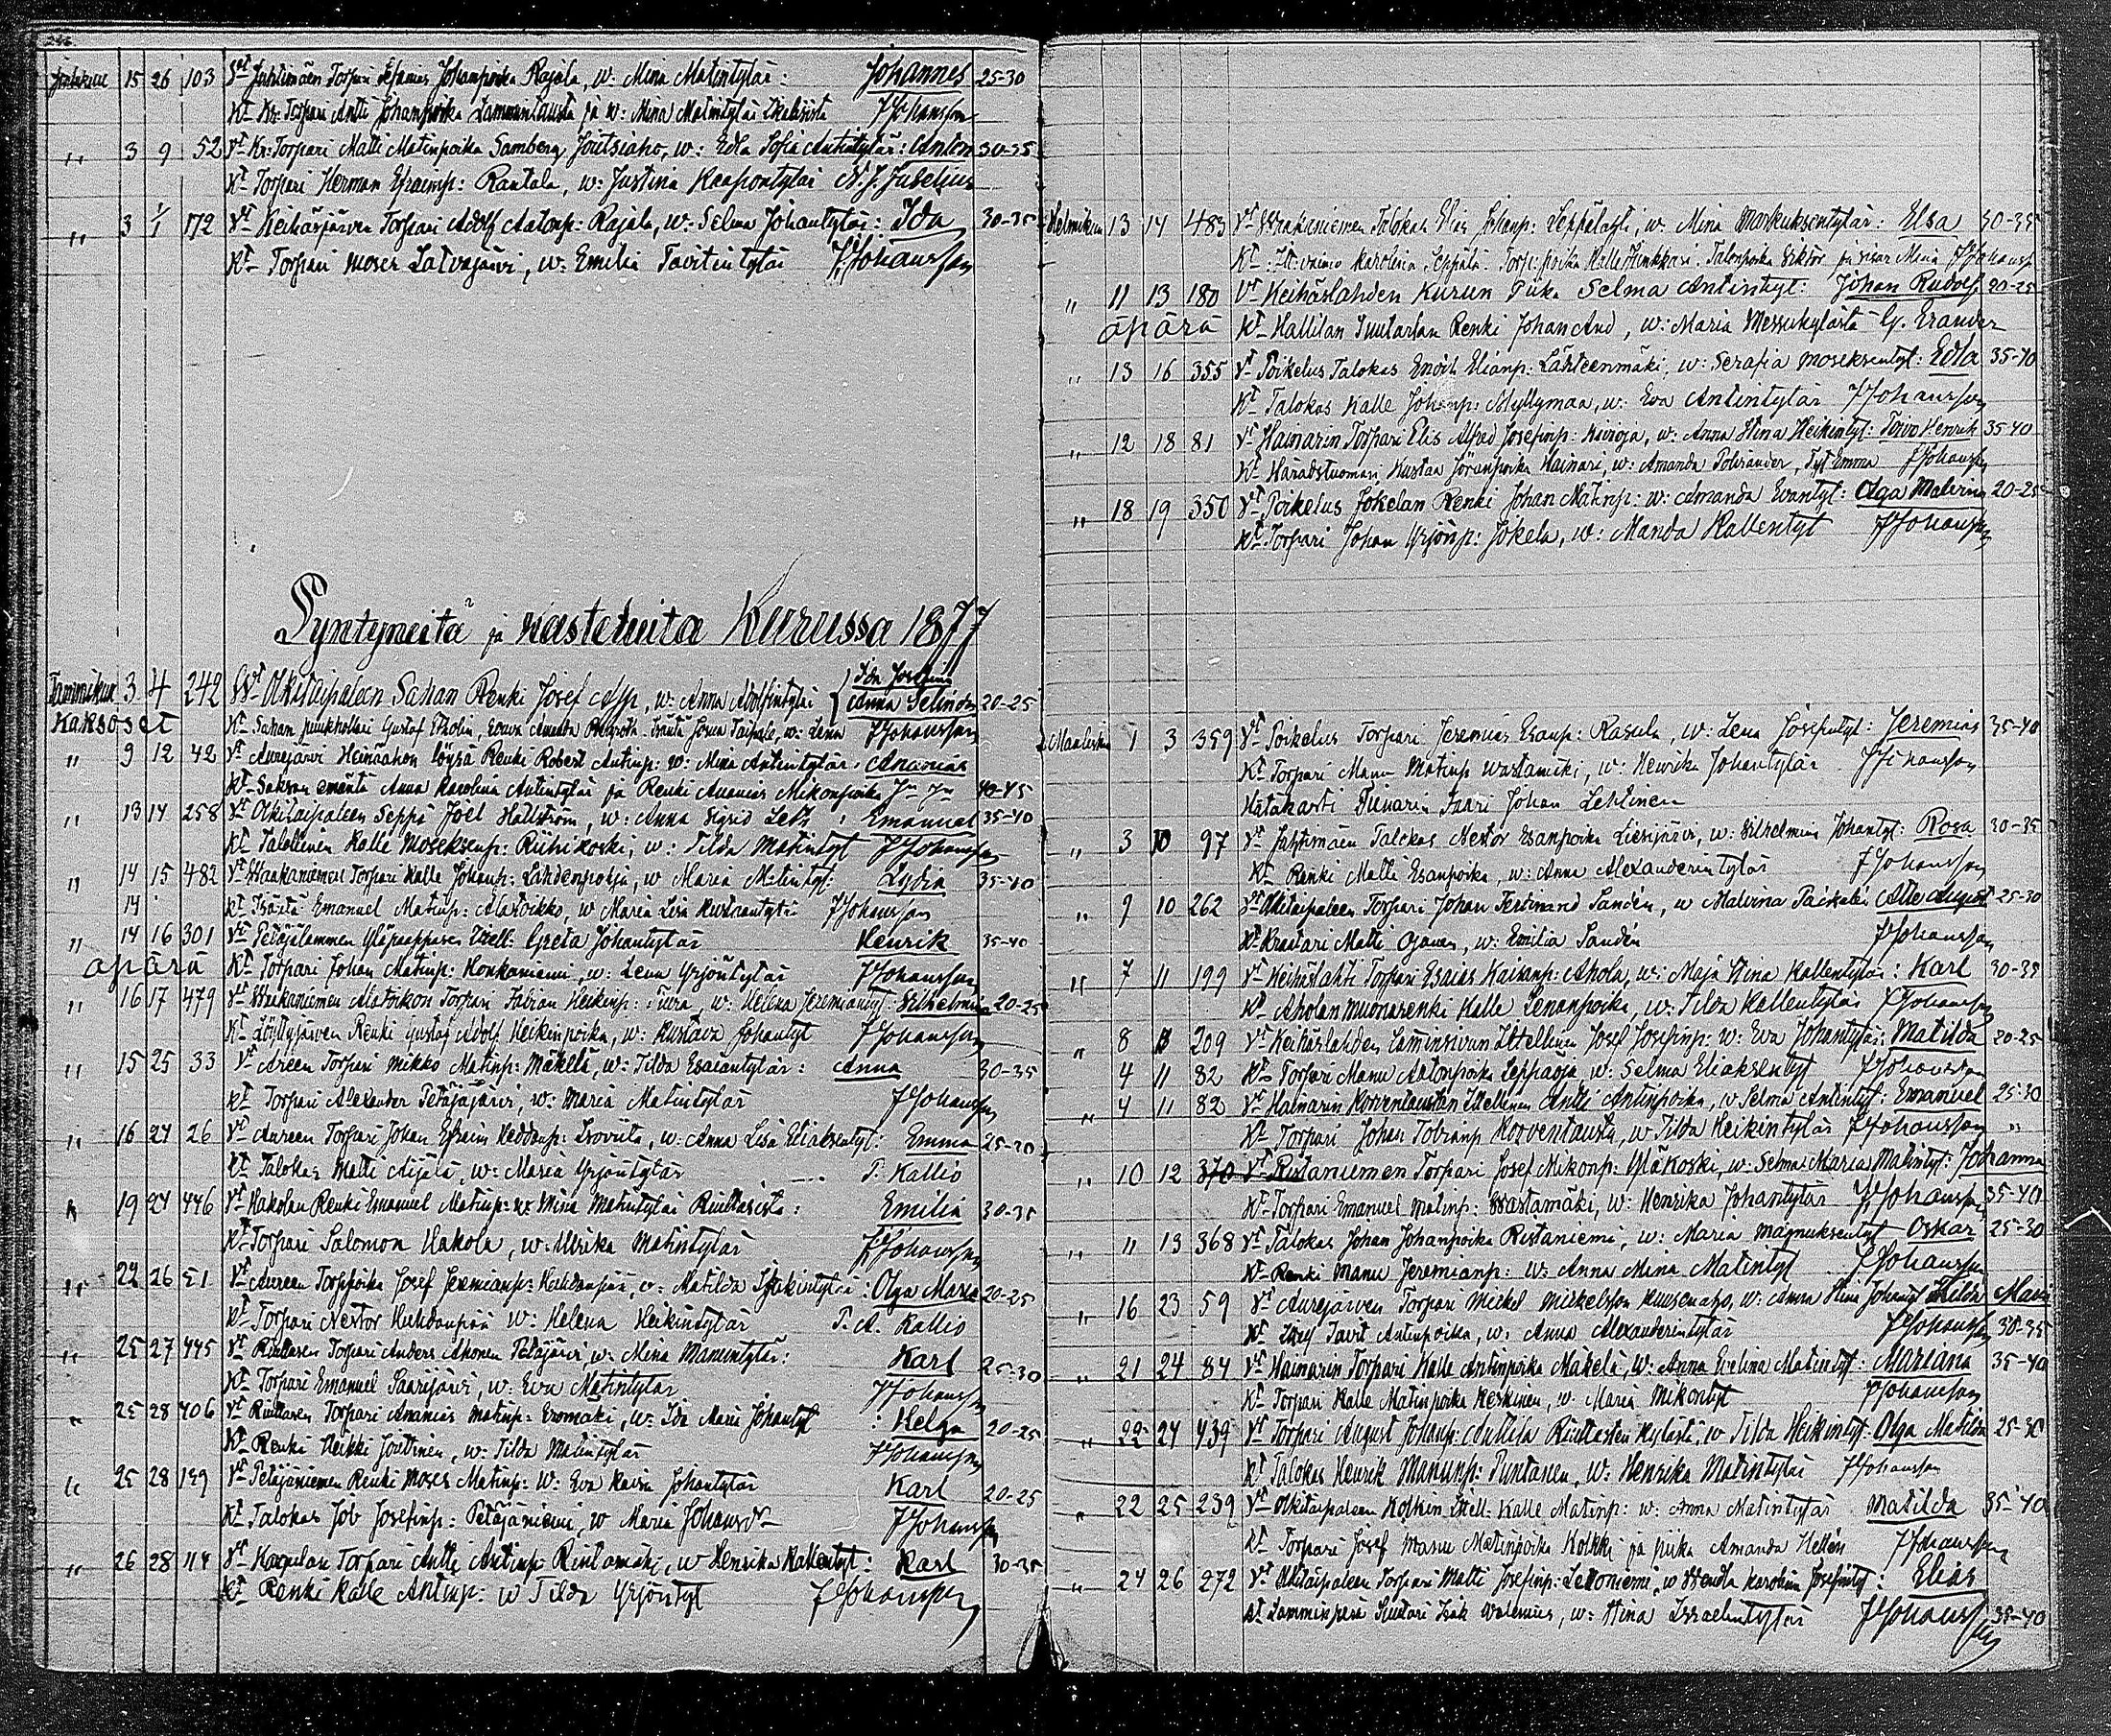 246.
Joulukuu 15 26 103 Vt Juhtimäen Torpari Johanpoika Rajala, w: Mina Matintytär: Johannes 25-30
Kt Kr. Torpari Antti Johanpoika Lammintausta ja w: Mina Matintytär JJohansson
" 3 9 52 Vt Kr: Torpari Matti Matinpoika Samberg Joutsiaho, w: Edla Sofia Antintytär: Anton 30-35
Kt Torpari Herman Efraimp: Rantala, w: Justina Kaapontytär N. J. Juselius
" 3 1/1 172 Vt Keihäsjärven Torpari Adolf Antonp: Rajala, w: Selma Johantytär: Ida 30-35
Kt Torpari Moses Latvajärvi, w: Emilia Tavitintytär JJohansson
Syntyneitä ja kastetuita Kurussa 1877
Tammikuu 3 4 242 Vt Olkitaipaleen Sahan Renki Josef Asp, w: Anna Adolfintytär Ida Josefina Anna Selinda 20-25
Kaksoset Kt Sahan Gustaf w: Lena JJohansson
" 9 12 42 Vt Aurejärvi Heinäahon löysä Renki Robert Antinp: w: Mina Antintytär: Ananias
Kt emäntä Anna Karolina Antintytär ja Renki Ananias Mikonpoika 40-45
" 13 14 258 Vt Olkitaipaleen Seppä Joel Hällström, w: Anna Sigrid : Emanuel 35-40
Kt Talollinen Kalle Moseksenp: Riihikoski, w: Tilda Matintyt JJohansson
" 14 15 482 Vt Waakaniemen Torpari Kalle Johanp: Lahdenpohja, w Maria Matintyt: Lydia 35-40
14 Kt Isäntä Emanuel Matinp: Alatoikko, w Maria Lisa Kustaantytär JJohansson
" 14 16 301 Vt Petäjälammen Itsell: Greta Johantytär Henrik 35-40
äpärä Kt Torpari Johan Matinp: Honkaniemi, w: Leena Yrjöntytär JJohansson
" 16 17 479 Vt Waakaniemen Alatoikon Torpari Fabian Heikinp: w: Helena Jeremiantyt: Wilhelmina 20-25
Kt Löytyjärven Renki Gustaf Adolf Heikinpoika, w: Kustava Johantyt JJohansson
" 15 25 33 Vt Aureen Torpari Mikko Matinp: Mäkelä, w: Tilda Esaiantytär: Anna 30-35
Kt Torpari Alexander Petäjäjärvi, w: Maria Matintytär JJohansson
" 16 27 26 Vt Aureen Torpari Johan Efraim w: Anna Lisa Eliaksentyt: Emma 25-30
Kt Talokas Matti Äijälä, w: Maria Yrjöntytär P. Kallio
" 19 27 446 Vt Hakolan Renki Emanuel Matinp: w Mina Matintytär Riuttasista: Emilia 30-35
Kt Torpari Salomon Hakola, w: Ulrika Matintytär JJohansson
" 22 26 51 Vt Aureen Torppoika Josef Jeremianp: w: Matilda : Olga Maria 20-25
Kt Torpari Nestor w: Helena Heikintytär P. A. Kallio
" 25 27 445 Vt Riuttasen Torpari Anders Ahonen Petäjärvi w: Mina Manuntytär: Karl 25-30
Kt Torpari Emanuel Saarijärvi, w: Eva Matintytär JJohansson
" 25 28 406 Vt Riuttasen Torpari Ananias Matinp: w: Ida Maria Johantyt: Helga 20-25
Kt Renki Heikki Joutinen, w: Tilda Matintytär JJohansson
" 25 28 149 Vt Petäjäniemen Renki Moses Matinp: w: Eva Johantytär Karl 20-25
Kt Talokas Job Josefinp: Petäjäniemi, w Maria JJohansson
" 26 28 114 Vt Torpari Antti Antinp: Rintamäki, w Henrika Kallentyt: Karl 30-35
Kt Renki Kalle Antinp: w Tilda Yrjöntyt JJohansson
Helmikuu 13 14 483 Vt Waakaniemen Talokas Elias Johanp: Leppälahti, w. Mina Markuksentytär: Elsa 30-35
Kt Karolina Leppälä. Torp: poika Kalle Talonpoika Viktor ja sisar Mina JJohansson
" 11 13 180 Vt Keihäslahden Kurun Piika Selma Antintyt: Johan Rudolf 20-25
äpärä Kt Hallilan Suutarlan Renki Johan And, w: Maria Messukylästä G. Erander
" 13 16 355 Vt Poikelus Talokas Enoch Elianp: Lähteenmäki, w: Serafia Moseksentyt: Edla 35-40
Kt Talokas Kalle Johanp: Myllymaa, w: Eva Antintytär JJohansson
" 12 18 81 Vt Hainarin Torpari Elis Alfred Josefinp: Kivioja, w: Anna Stina Heikintyt: Toivo Henrik 35-40
Kt Häradstuomari Kustaa Jöranpoika Hainari, w: Amanda Tyt Emma JJohansson
" 18 19 350 Vt Poikelus Jokelan Renki Johan Matinp: w: Amanda Evantyt: Olga Malvina 20-25
Kt Torpari Johan Yrjönp: Jokela, w: Manda Kallentyt JJohansson
Maaliskuu 1 3 359 Vt Poikelus Torpari Jeremias Esaup: Rasula, w: Lena Josefintyt: Jeremias 35-40
Kt Torpari Manu Matinp Wastamäki, w: Henrika Johantytär JJohansson
Hätäkasti Johan Lehtinen
" 3 10 97 Vt Juhtimäen Talokas Nestor Esanpoika Liesijärvi, w: Vilhelmina Johantyt: Rosa 30-35
Kt Renki Malle Esanpoika, w: Anna Alexanderintytär JJohansson
" 9 10 262 Vt Olkitaipaleen Torpari Johan Ferdinand Sandén, w Malvina Atle August 25-30
Kt Kraatari Matti Ojanen, w: Emilia Sandén JJohansson
" 7 11 199 Vt Keihäslahti Torpari Esaias Kaisanp: Ahola, w: Maja Stina Kallentytär: Karl 30-35
Kt Aholan muonarenki Kalle Lenanpoika, w: Tilda Kallentytär JJohansson
" 8 209 Vt Keihäslahden Itsellinen Josef Josefinp: w: Eva Johantytär: Matilda 20-25
4 11 82 Kt Torpari Manu Antonpoika Leppäoja w: Selma Eliaksentyt JJohansson
" 4 11 82 Vt Hainarin Korventaustan Itsellinen Antti Antinpoika, w Selma Antintyt: Emanuel 25-30
Kt Torpari Johan Tobianp Korventausta, w Tilda Heikintytär JJohansson "
" 10 12 370 Vt Ristaniemen Torpari Josef Mikonp: Yläkoski, w: Selma Maria Matintyt: Johanna
Kt Torpari Emanuel Matinp: Wastamäki, w: Henrika Johantytär JJohansson 35-40
" 11 13 368 Vt Talokas Johan Johanpoika Ristaniemi, w: Maria Magnuksentyt Oskar 25-30
Kt Renki Manu Jeremianp: w: Anna Mina Matintyt JJohansson
" 16 23 59 Vt Aurejärven Torpari Mickel Mickelsson Kuusenaho, w: Anna Stina Johantyt Hilda Maria
Kt Tavit Antinpoika, w: Anna Alexanderintytär JJohansson 30-35
" 21 24 84 Vt Hainarin Torpari Kalle Antinpoika Mäkelä, w: Anna Evelina Matintyt: Mariana 35-40
Kt Torpari Kalle Matinpoika Keskinen, w: Maria Mikontyt JJohansson
" 22 24 439 Vt Torpari August Johanp: Anttila Riuttasten kylästä, w Tilda Heikintyt: Olga Matilda 25-30
Kt Talokas Henrik Manunp: Puntanen, w: Henrika Matintytär JJohansson
" 22 25 239 Vt Olkitaipaleen Kolkin Itsell. Kalle Matinp: w: Anna Matintytär Matilda 35-40
Kt Torpari Josef Manu Matinpoika Kolkki ja piika Amanda Hellén JJohansson
" 24 26 272 Vt Olkitaipaleen Torpari Matti Josefinp: Leponiemi, w Wendla Karolina Josefintyt: Elias
Kt Lamminperä Suutari Isak Valenius, w: Stina Israelintytär JJohansson 35-40